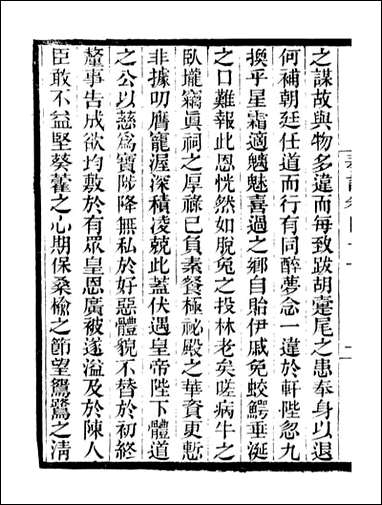 之謀故與物多違而每致跋胡疐尾之患奉身以退
何補朝廷仕道而行有同醉夢念一違於軒陛忽九
換乎星霜適魑魅喜過之鄉自貽伊戚免蛟鱷垂涎
之口難報此恩恍然如脫兔之投林老矣嗟病牛之
臥壠竊眞祠之厚祿已負素餐極祕殿之華資更慙
非據叨膺寵渥深積凌兢此蓋伏遇皇帝陛下體道
之公以慈爲寶陟降無私於好惡體貌不替於初終
釐事告成欲均敷於有眾皇恩廣被遂溢及於陳人
臣敢不益堅葵藿之心期保桑榆之節望鴛鷺之淸